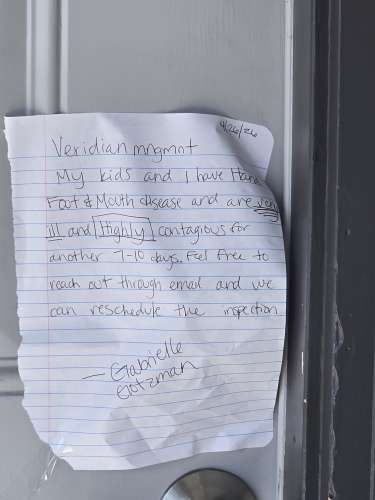 4/26/26
Veridian mngmnt
My kids and I have Hand
Foot & Mouth disease and are very
ill and Highly contagious for
another 7-10 days. Feel free to
reach out through email and we
can reschedule the inspection
— Gabrielle
Gotzman